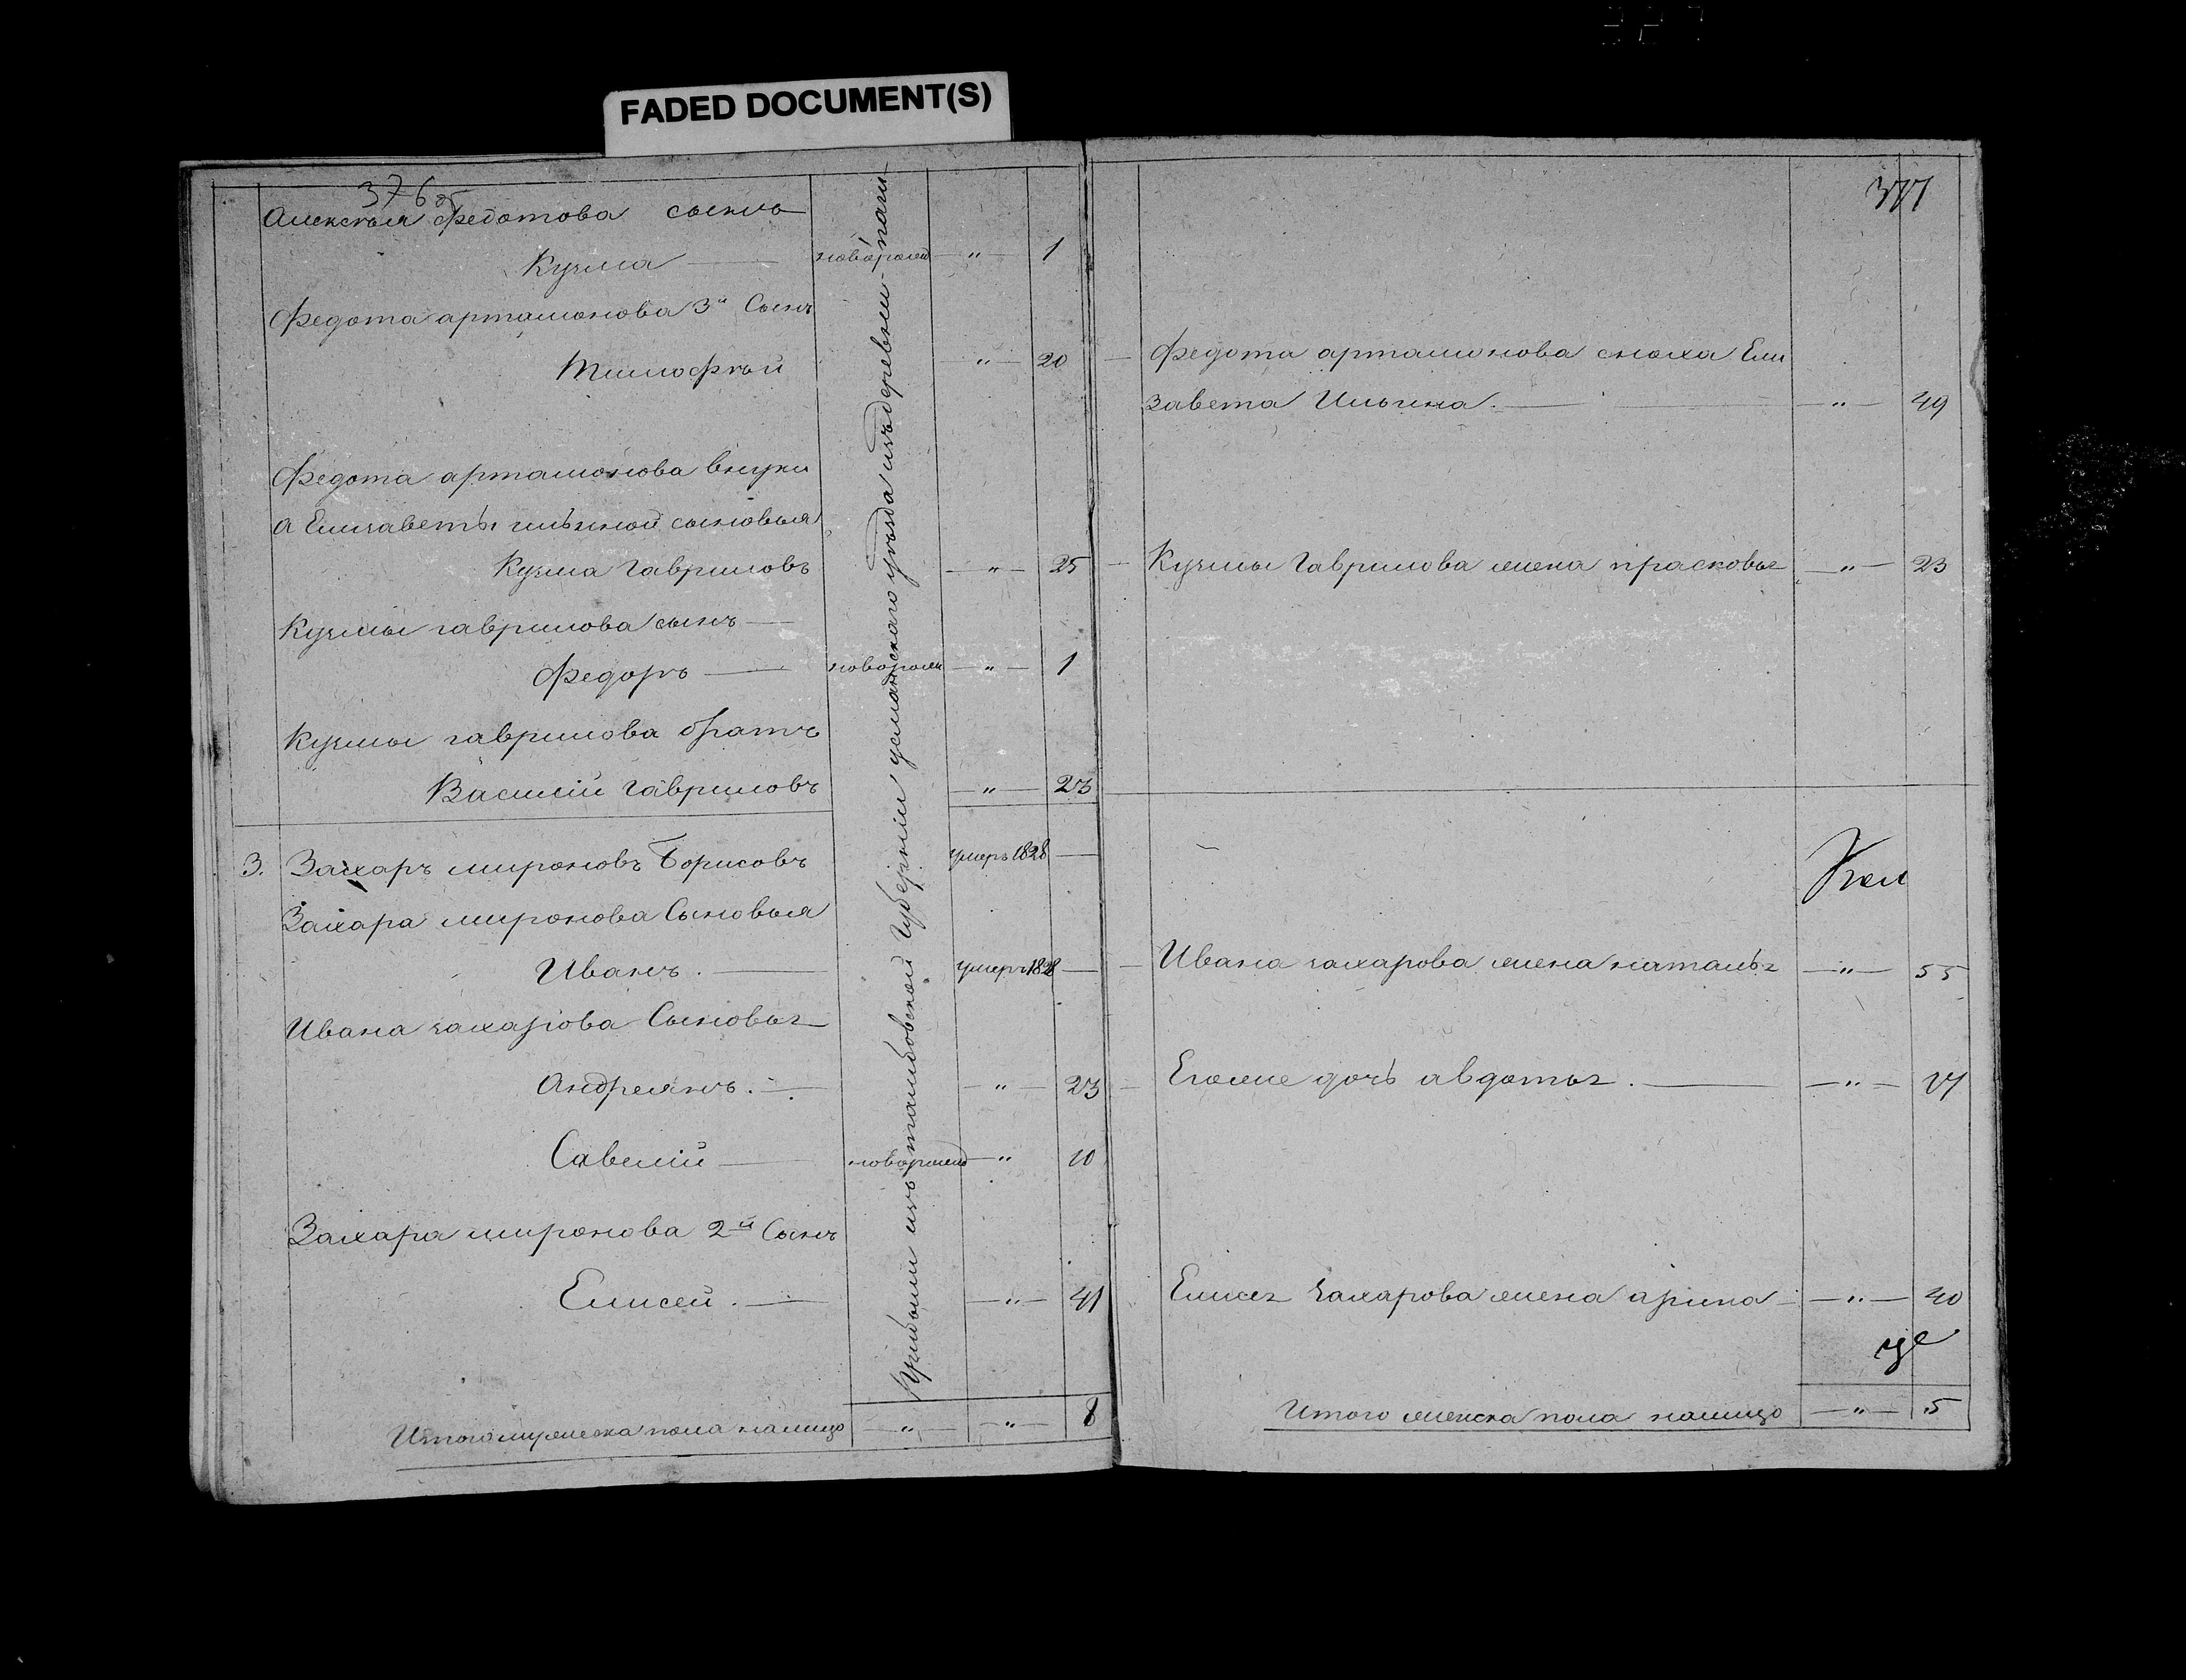 FADED DOCUMENT(S)
376 об
Алексѣя Федотова сынъ
Кузма новорожд " 1
Федота артамонова 3й Сынъ
Тимофѣй " 20
Федота артамонова внуки
а Елизаветы ильиной сыновья
Кузма Гавриловъ " 25
Кузмы гаврилова сынъ
Федоръ новорожд " 1
Кузмы гаврилова братъ
Василій Гавриловъ " 23
3. Захаръ мироновъ Борисовъ умеръ 1828
Захара миронова Сыновья
Иванъ. умеръ 1828
Ивана захарова Сыновья
Андреянъ. " 23
Савелій новорожд " 10
Захара миронова 2й Сынъ
Елисей. " 41
Итого мужеска пола налицо " " 8
Прибыли изъ тамбовской Губерніи усманскаго уѣзда изъ деревни
377
Федота артамонова сноха Ели
завета Ильина. " 49
Кузмы Гаврилова жена прасковья " 23
Ивана захарова жена наталья " 55
Егоже дочь авдотья. " 17
Елисея Захарова жена арина " 40
Итого женска пола налицо " 5